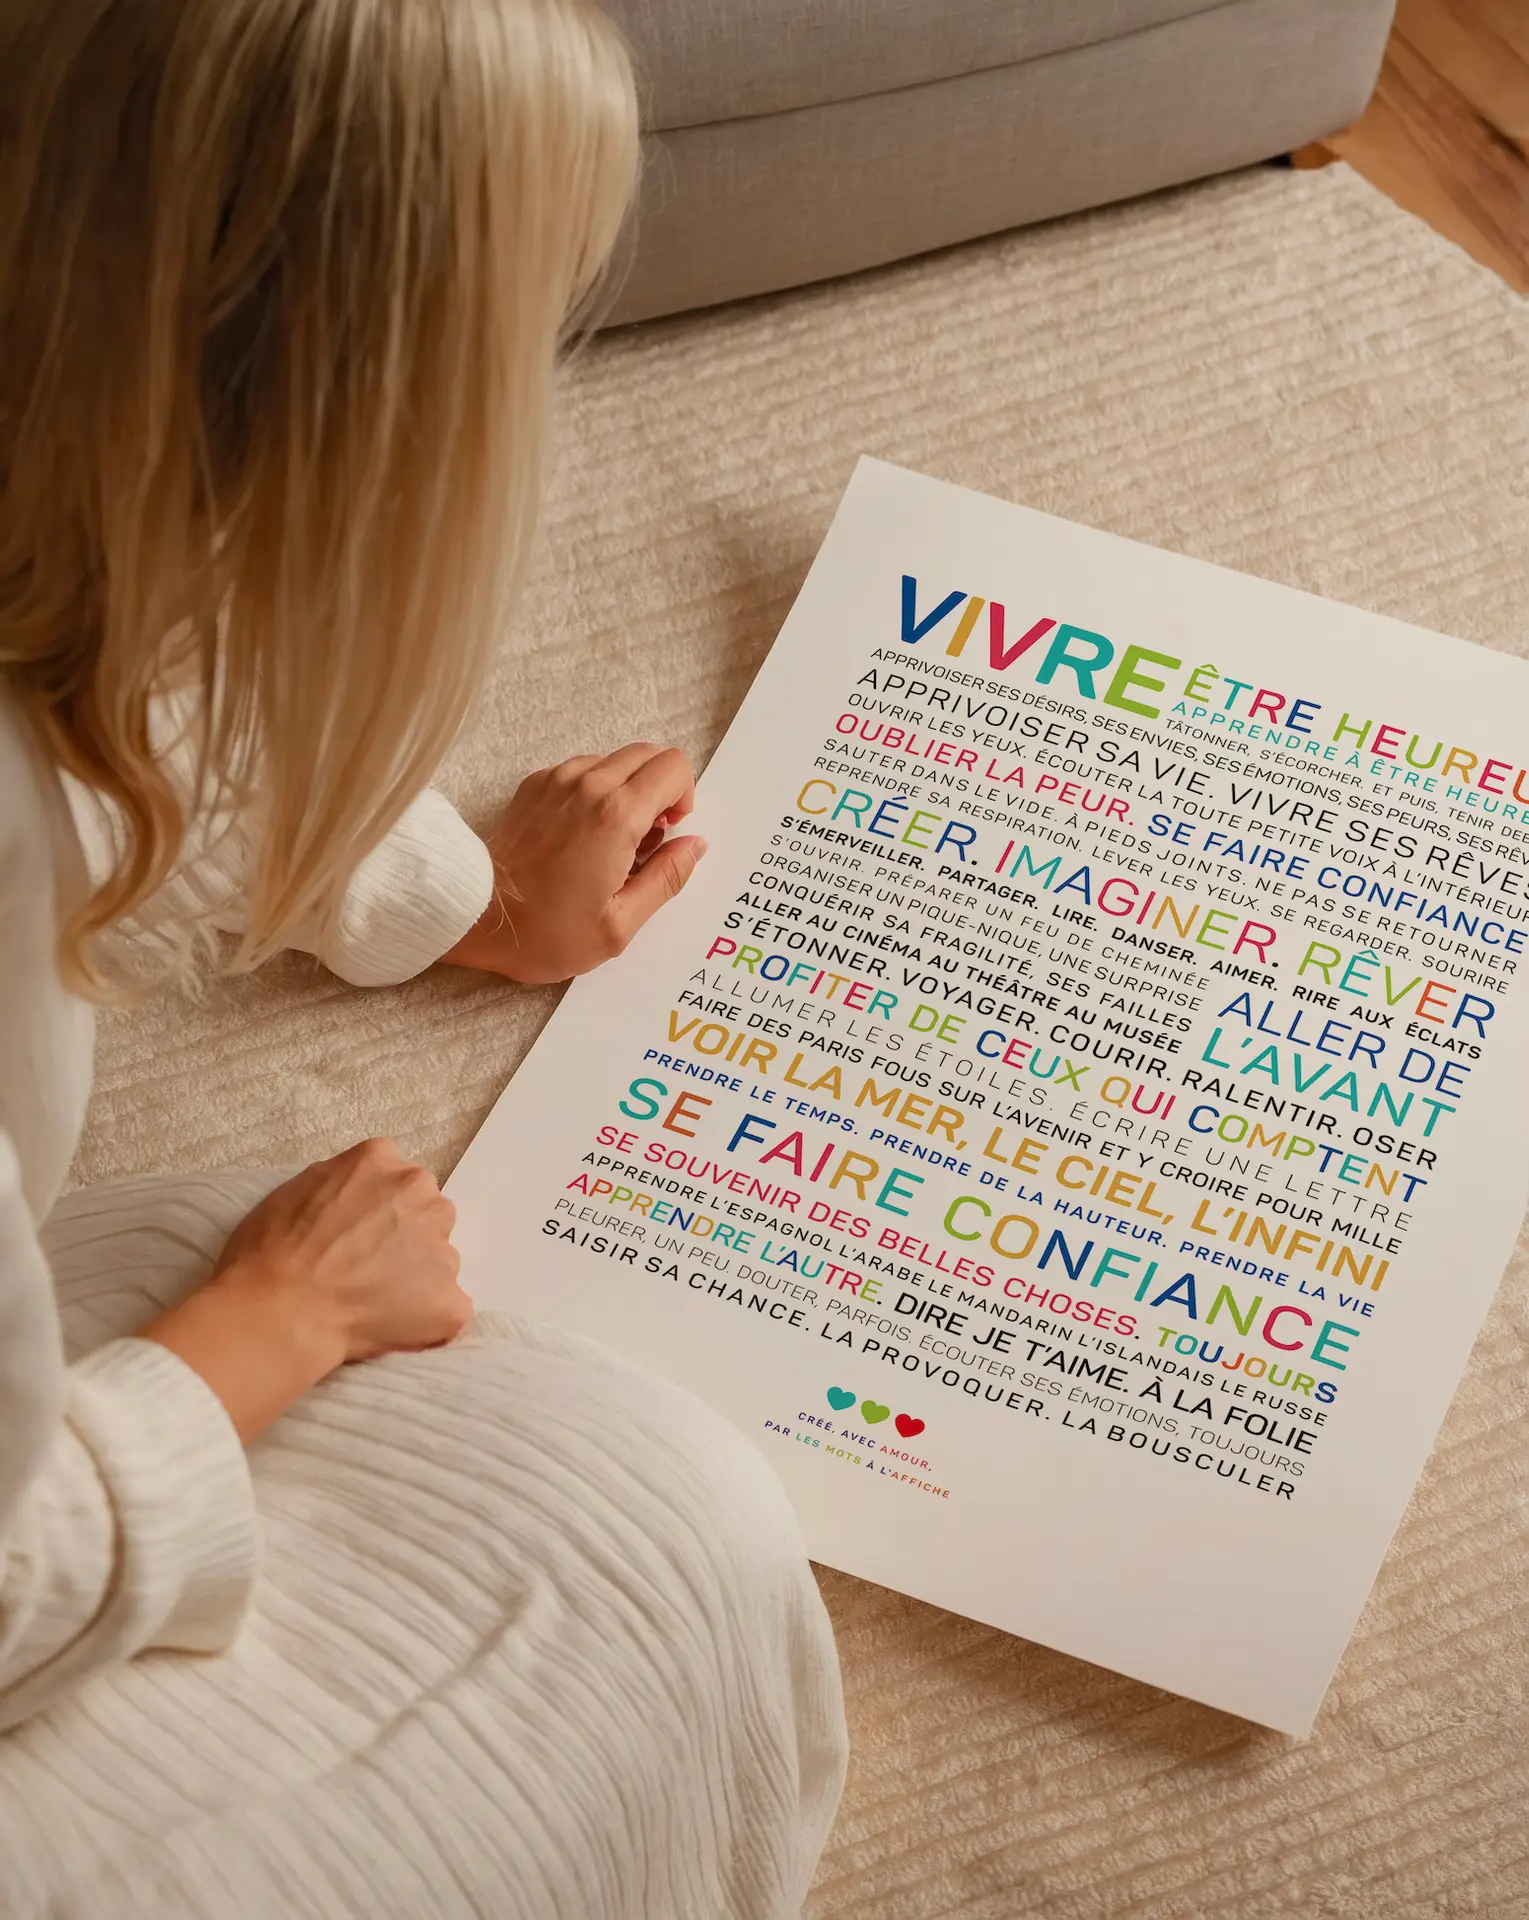 VIVRE ÊTRE HEUREU
APPRENDRE À ÊTRE HEURE
TÂTONNER, S'ÉCORCHER, ET PUIS, TENIR DEB
APPRIVOISER SES DÉSIRS, SES ENVIES, SES ÉMOTIONS, SES PEURS, SES RÊV
APPRIVOISER SA VIE. VIVRE SES RÊVES
OUVRIR LES YEUX. ÉCOUTER LA TOUTE PETITE VOIX À L'INTÉRIEUR
OUBLIER LA PEUR. SE FAIRE CONFIANCE
SAUTER DANS LE VIDE. À PIEDS JOINTS. NE PAS SE RETOURNER
REPRENDRE SA RESPIRATION. LEVER LES YEUX. SE REGARDER. SOURIRE
CRÉER. IMAGINER. RÊVER
S'ÉMERVEILLER. PARTAGER. LIRE. DANSER. AIMER. RIRE AUX ÉCLATS
S'OUVRIR. PRÉPARER UN FEU DE CHEMINÉE
ORGANISER UN PIQUE-NIQUE, UNE SURPRISE
CONQUÉRIR SA FRAGILITÉ, SES FAILLES
ALLER AU CINÉMA AU THÉÂTRE AU MUSÉE
ALLER DE
L'AVANT
S'ÉTONNER. VOYAGER. COURIR. RALENTIR. OSER
PROFITER DE CEUX QUI COMPTENT
ALLUMER LES ÉTOILES. ÉCRIRE UNE LETTRE
FAIRE DES PARIS FOUS SUR L'AVENIR ET Y CROIRE POUR MILLE
VOIR LA MER, LE CIEL, L'INFINI
PRENDRE LE TEMPS. PRENDRE DE LA HAUTEUR. PRENDRE LA VIE
SE FAIRE CONFIANCE
SE SOUVENIR DES BELLES CHOSES. TOUJOURS
APPRENDRE L'ESPAGNOL L'ARABE LE MANDARIN L'ISLANDAIS LE RUSSE
APPRENDRE L'AUTRE. DIRE JE T'AIME. À LA FOLIE
PLEURER, UN PEU. DOUTER, PARFOIS. ÉCOUTER SES ÉMOTIONS, TOUJOURS
SAISIR SA CHANCE. LA PROVOQUER. LA BOUSCULER
CRÉÉ, AVEC AMOUR,
PAR LES MOTS À L'AFFICHE